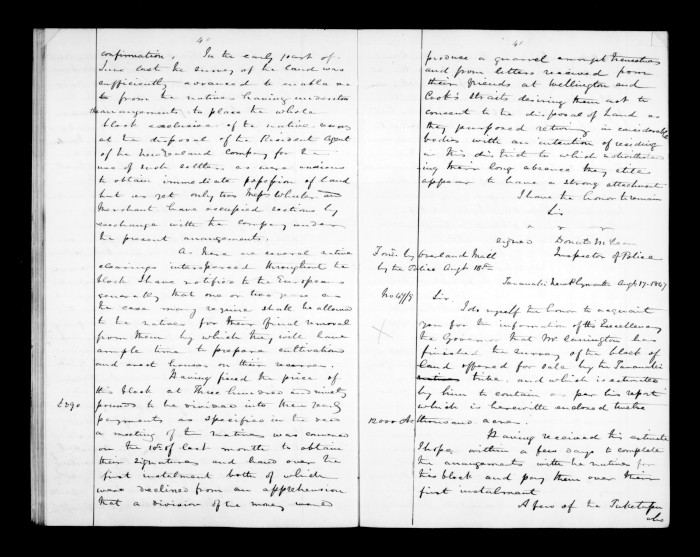 4
confirmation. In the early part of
June last the survey of the land was
sufficiently advanced to enable me
from the natives having understood the
arrangements to place the whole
block exclusive of the native reserves
at the disposal of the Resident Agent
of the New Zealand Company for the
use of such settlers as were anxious
to obtain immediate possession of land
but as yet only two Messrs Wheeler and
Merchant have occupied sections by
exchange with the Company under
the present arrangements.
As there are several native
clearings interspersed throughout the
block I have notified to the Europeans
generally that one or two years as
the case may require shall be allowed
to the natives for their final removal
from them by which they will have
ample time to prepare cultivations
and erect houses on their reserves.
Having fixed the price of
this block at Three hundred and ninety
£390
pounds to be divided into three yearly
payments as specified in the deed
a meeting of the natives was convened
on the 10th of last month to obtain
their signatures and hand over the
first instalment both of which
were declined from an apprehension
that a division of the money would
4
produce a quarrel amongst themselves
and from letters received from
their friends at Wellington and
Cook's Straits desiring them not to
consent to the disposal of land as
they purposed returning in considerable
bodies with an intention of residing
in this district to which notwithstanding
their long absence they still
appear to have a strong attachment
I have the honor to remain
Sir
signed Donald McLean
Inspector of Police
Ford. by Overland Mail
by the Police Augt 18th
Taranaki New Plymouth Augt 17. 1847
No 47/8
Sir
I do myself the honor to acquaint
you for the information of His Excellency
the Governor that Mr Carrington has
finished the survey of the block of
land offered for sale by the Taranaki
tribe, and which is estimated
by him to contain as per his report
which is herewith enclosed twelve
12000 Ac
thousand acres.
Having received this estimate
I hope within a few days to complete
the arrangements with the natives for
this block and pay them over their
first instalment
A few of the Puketapu
who